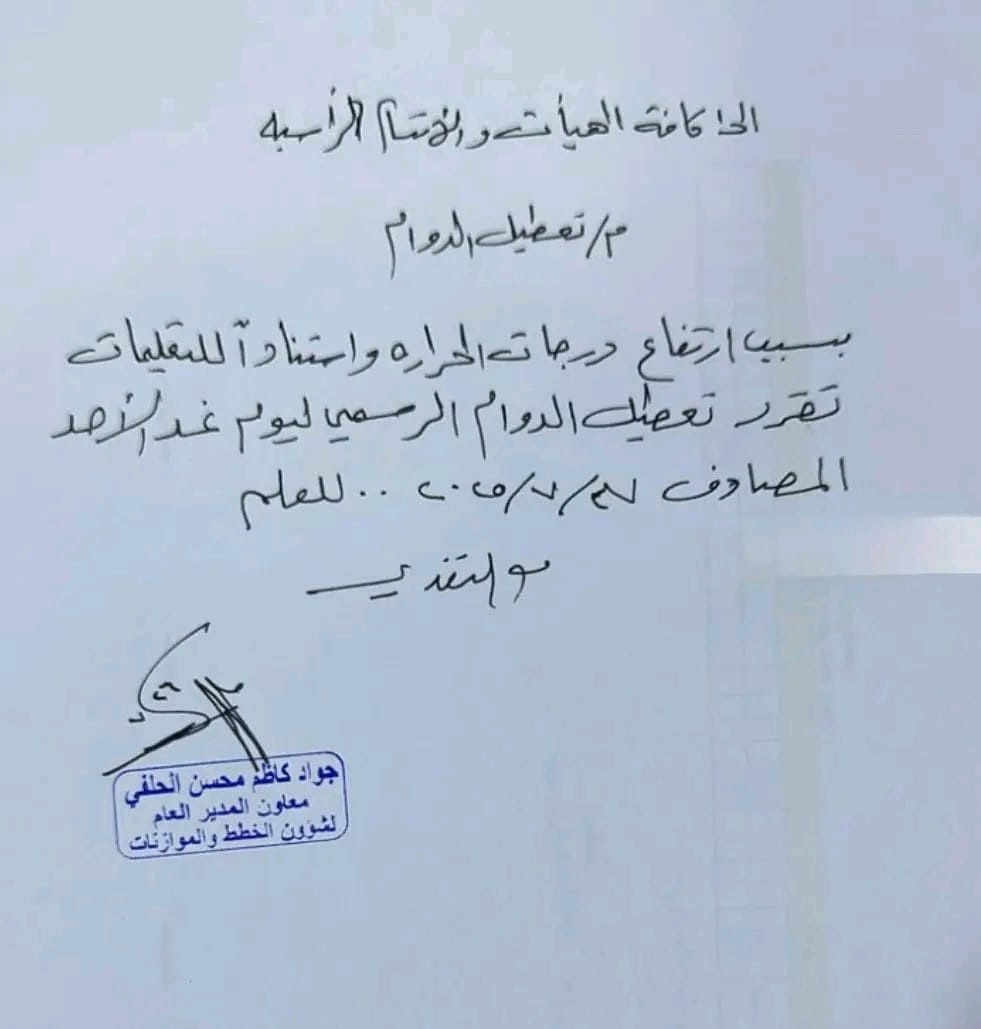 الى كافة الهيأت والأقسام الرأسيه
م/ تعطيل الدوام
بسبب ارتفاع درجات الحراره واستناداً للتعليمات
تقرر تعطيل الدوام الرسمي ليوم غد الأحد
المصادف ٢٠٢٥/٧/٢٧ .. للعلم
مع التقدير
جواد كاظم محسن الحلفي
معاون المدير العام
لشؤون الخطط والموازنات